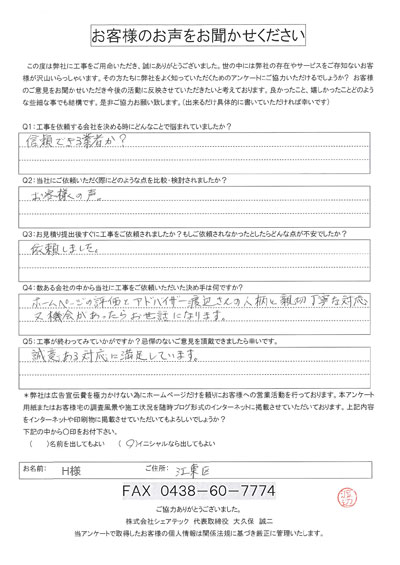 お客様のお声をお聞かせください
この度は弊社に工事をご用命いただき、誠にありがとうございました。世の中には弊社の存在やサービスをご存知ないお客
様が沢山いらっしゃいます。その方たちに弊社をよく知っていただくためのアンケートにご協力いただけるでしょうか？ お客様
のご意見をお聞かせいただき今後の活動に反映させていただきたいと考えております。良かったこと、嬉しかったことどのよう
な些細な事でも結構です。是非ご協力お願い致します。（出来るだけ具体的に書いていただければ幸いです）
Q1:工事を依頼する会社を決める時にどんなことで悩まれていましたか？
信頼できる業者か？
Q2:当社にご依頼いただく際にどのような点を比較・検討されましたか？
お客様の声。
Q3:お見積り提出後すぐに工事をご依頼されましたか？もしご依頼されなかったとしたらどんな点が不安でしたか？
依頼しました。
Q4:数ある会社の中から当社に工事をご依頼いただいた決め手は何ですか？
ホームページの評価とアドバイザー渡辺さんの人柄と親切丁寧な対応、
又機会があったらお世話になります。
Q5:工事が終わってみていかがですか？忌憚のないご意見を頂戴できましたら幸いです。
誠意ある対応に満足しています。
＊弊社は広告宣伝費を極力かけない為にホームページだけを頼りにお客様への営業活動を行っております。本アンケート
用紙またはお客様宅の調査風景や施工状況を随時ブログ形式のインターネットに掲載させていただいております。上記内容
をインターネットや印刷物に掲載させていただいてもよろしいでしょうか？
下記の中から〇印をお付下さい。
（　）名前を出してもよい （○）イニシャルなら出してもよい
お名前: H様 ご住所: 江東区
FAX 0438-60-7774
渡辺
ご協力ありがとうございました。
株式会社シェアテック 代表取締役 大久保 誠二
当アンケートで取得したお客様の個人情報は関係法規に基づき厳正に管理いたします。